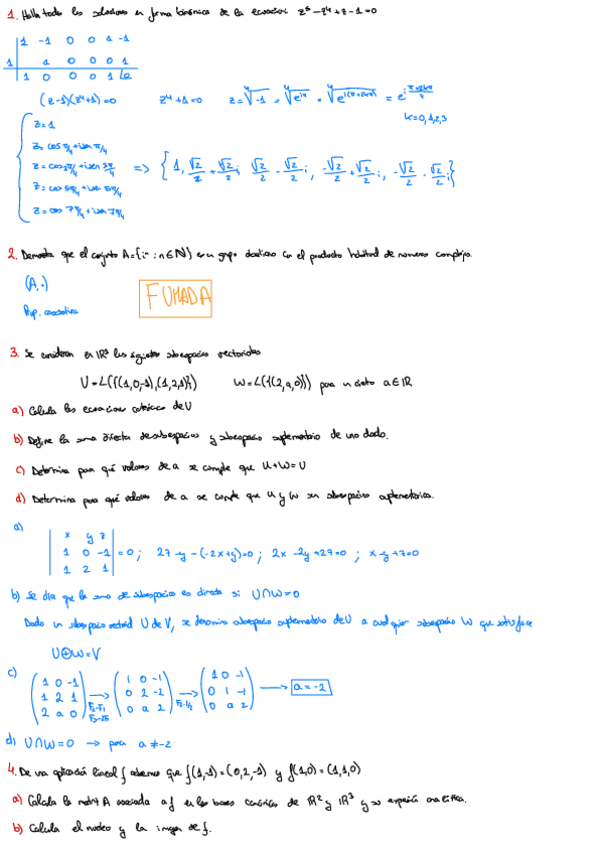 1. Halla todas las soluciones en forma binómica de la ecuación z⁵-z⁴+z-1=0
1 -1 0 0 1 -1
1 1 0 0 0 1
1 0 0 0 1 0
(z-1)(z⁴+1)=0 z⁴+1=0 z=⁴√-1 = ⁴√e^{iπ} = ⁴√e^{i(π+2kπ)} = e^{i(π+2kπ)/4}
k=0,1,2,3
z=1
z=cos π/4+isen π/4
z=cos 3π/4+isen 3π/4 => {1, √2/2+√2/2 i, √2/2-√2/2 i, -√2/2+√2/2 i, -√2/2-√2/2 i}
z=cos 5π/4+isen 5π/4
z=cos 7π/4+isen 7π/4
2. Demuestra que el conjunto A={iⁿ:n∈N} es un grupo abeliano con el producto habitual de números complejos.
(A,·)
Prop. asociativa
FUMADA
3. Se consideran en IR³ los siguientes subespacios vectoriales
U=L({(1,0,-1),(1,2,1)}) W=L({(2,a,0)}) para un cierto a∈IR
a) Calcula las ecuaciones cartesianas de U
b) Define la suma directa de subespacios y subespacio suplementario de uno dado.
c) Determina para qué valores de a se cumple que U+W=U
d) Determina para qué valores de a se cumple que U y W son subespacios suplementarios.
a)
x y z
1 0 -1 =0; 2z-y-(-2x+y)=0; 2x-2y+2z=0; x-y+z=0
1 2 1
b) Se dice que la suma de subespacios es directa si U∩W=0
Dado un subespacio vectorial U de V, se denomina subespacio suplementario de U a cualquier subespacio W que satisface
U⊕W=V
c)
1 0 -1 1 0 -1 1 0 -1
1 2 1 0 2 -2 0 1 -1 a=-2
2 a 0 0 a 2 0 a 2
F₂-F₁ F₂·1/2
F₃-2F₁
d) U∩W=0 → para a≠-2
4. De una aplicación lineal f sabemos que f(1,-1)=(0,2,-1) y f(1,0)=(1,1,0)
a) Calcula la matriz A asociada a f en las bases canónicas de IR² y IR³ y su expresión analítica.
b) Calcula el núcleo y la imagen de f.